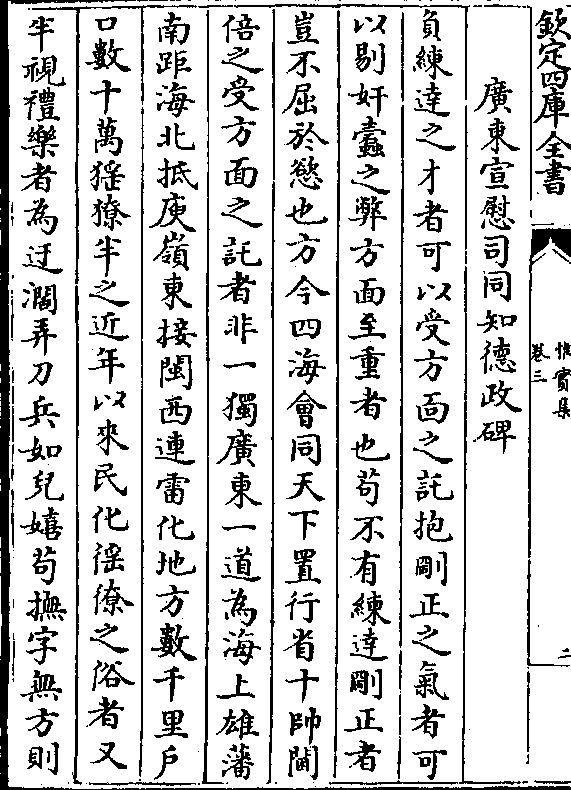 欽定四庫全書
惟實集
卷三
二
廣東宣慰司同知德政碑
負練達之才者可以受方面之託抱剛正之氣者可
以剔奸蠹之弊方面至重者也苟不有練達剛正者
豈不屈於慾也方今四海會同天下置行省十帥閫
倍之受方面之託者非一獨廣東一道為海上雄藩
南距海北抵庾嶺東接閩西連雷化地方數千里戶
口數十萬猺獠半之近年以來民化徭僚之俗者又
半視禮樂者為迂濶弄刀兵如兒嬉苟撫字無方則